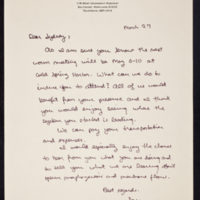 March 29
Dear Sydney,
As I am sure you know the next
worm meeting will be May 6-10 at
Cold Spring Harbor. What can we do to
induce you to attend? All of us would
benefit from your presence and I think
you would enjoy seeing where the
system you started is leading.
We can pay your transportation
and expenses.
I would especially enjoy the chance
to hear from you what you are doing and
to tell you what we are learning about
Best regards,